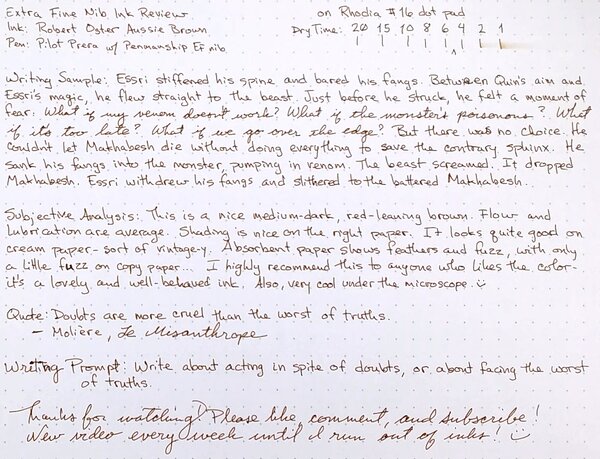 Extra Fine Nib Ink Review on Rhodia #16 dot pad
Ink: Robert Oster Aussie Brown Dry Time: 20 15 10 8 6 4 2 1
Pen: Pilot Prera w/ Penmanship EF nib
Writing Sample: Essri stiffened his spine and bared his fangs. Between Quin's aim and
Essri's magic, he flew straight to the beast. Just before he struck, he felt a moment of
fear. What if my venom doesn't work? What if the monster's poisonous? What
if it's too late? What if we go over the edge? But there was no choice. He
couldn't let Makhabesh die without doing everything to save the contrary sphinx. He
sank his fangs into the monster, pumping in venom. The beast screamed. It dropped
Makhabesh. Essri withdrew his fangs and slithered to the battered Makhabesh.
Subjective Analysis: This is a nice medium-dark, red-leaning brown. Flow and
lubrication are average. Shading is nice on the right paper. It looks quite good on
cream paper - sort of vintage-y. Absorbent paper shows feathers and fuzz, with only
a little fuzz on copy paper... I highly recommend this to anyone who likes the color-
it's a lovely and well-behaved ink. Also, very cool under the microscope. :)
Quote: Doubts are more cruel than the worst of truths.
- Molière, Le Misanthrope
Writing Prompt: Write about acting in spite of doubts, or about facing the worst
of truths.
Thanks for watching! Please like, comment, and subscribe!
New video every week until I run out of inks! :)